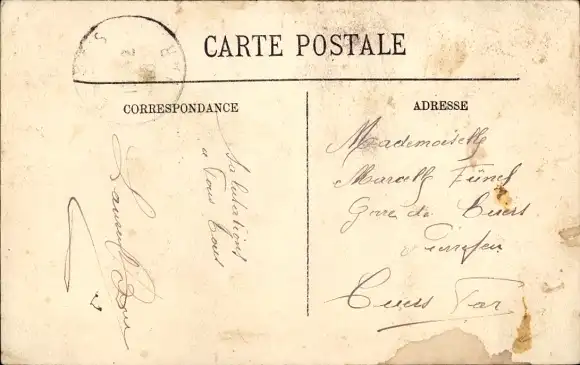 CARTE POSTALE
CORRESPONDANCE
Salutations
a Tous
ADRESSE
Mademoiselle
Marcelle Fünel
Gare de Cuers
Pierrefeu
Cuers Var